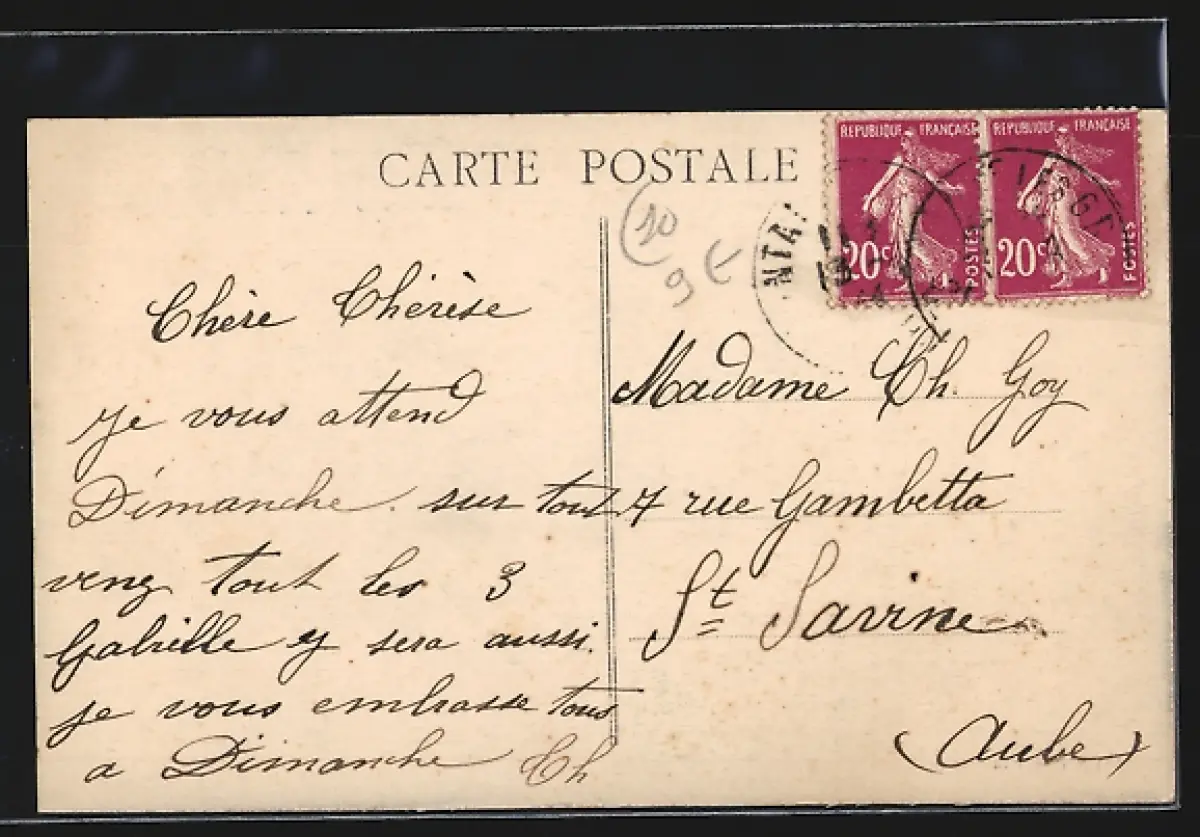 CARTE POSTALE
REPUBLIQUE FRANÇAISE
20c POSTES
REPUBLIQUE FRANÇAISE
20c POSTES
(10
9 €
NTA
Chère Thérèse
je vous attend
Dimanche. sur tout
venez tout les 3
Gabrielle y sera aussi.
je vous embrasse tous
a Dimanche Th
Madame Ch. Goy
4 rue Gambetta
St Savine
(Aube)